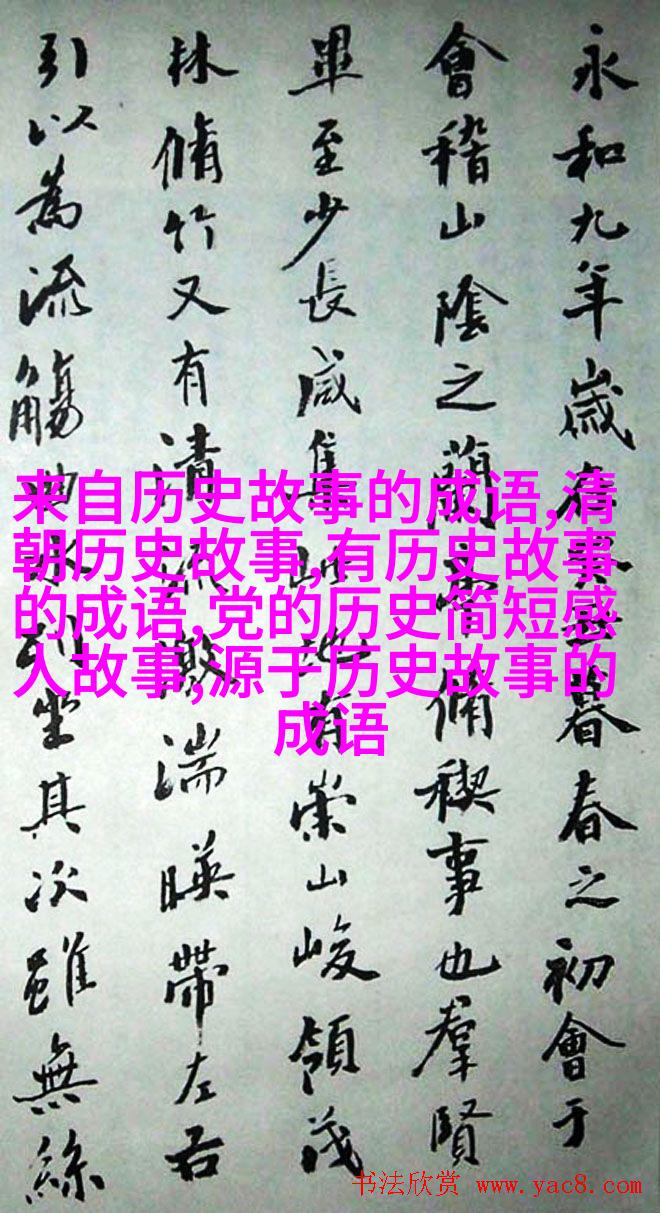 永和九年歲在癸丑暮春之初會于
會稽山陰之蘭亭脩稧事也羣賢
畢至少長咸集此地有崇山峻領茂
林脩竹又有清流激湍暎帶左右
引以為流觴曲水列坐其次雖無絲
来自历史故事的成语,清
朝历史故事,有历史故事
的成语,党的历史简短感
人故事,源于历史故事的
成语
书法欣赏 www.yac8.com